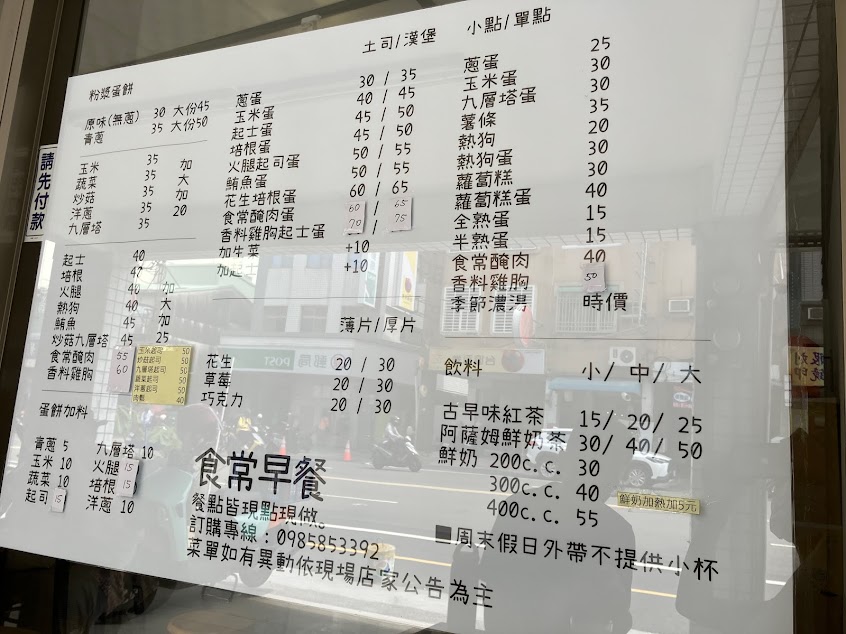 請先付款
粉漿蛋餅
原味(無蔥) 30 大份45
青蔥 35 大份50
玉米 35 加
蔬菜 35 大
炒菇 35 加
洋蔥 35 20
九層塔 35
起士 40
培根 40
火腿 40 加
熱狗 40 大
鮪魚 45 加
炒菇九層塔 45 25
食常醃肉 55
香料雞胸 60
玉米起司 50
炒菇起司 50
九層塔起司 50
蔬菜起司 50
洋蔥起司 50
肉鬆 40
蛋餅加料
青蔥 5 九層塔 10
玉米 10 火腿 15
蔬菜 10 培根 15
起司 15 洋蔥 10
土司/漢堡
蔥蛋 30 / 35
玉米蛋 40 / 45
起士蛋 45 / 50
培根蛋 45 / 50
火腿起司蛋 50 / 55
鮪魚蛋 50 / 55
花生培根蛋 60 / 65
食常醃肉蛋 60 / 65
香料雞胸起士蛋 70 / 75
加生菜 +10
加起士 +10
薄片/厚片
花生 20 / 30
草莓 20 / 30
巧克力 20 / 30
小點/單點
蔥蛋 25
玉米蛋 30
九層塔蛋 30
薯條 35
熱狗 20
熱狗蛋 30
蘿蔔糕 30
蘿蔔糕蛋 40
全熟蛋 15
半熟蛋 15
食常醃肉 40
香料雞胸 50
季節濃湯 時價
飲料 小/ 中/ 大
古早味紅茶 15/ 20/ 25
阿薩姆鮮奶茶 30/ 40/ 50
鮮奶 200c.c. 30
300c.c. 40
400c.c. 55
鮮奶加熱加5元
■周末假日外帶不提供小杯
食常早餐
餐點皆現點現做。
訂購專線：0985853392
菜單如有異動依現場店家公告為主